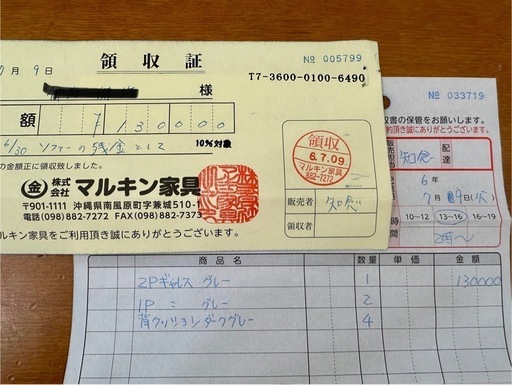 領収証
№ 005799
7月 9日
様
T7-3600-0100-6490
額
¥130000
6/30 ソファーの残金として
10%対象
の金額正に領収致しました。
金 株式会社 マルキン家具
〒901-1111 沖縄県南風原町字兼城510-1
電話(098)882-7272 FAX(098)882-7373
マルキン家具をご利用頂き誠にありがとうございます。
領収
6.7.09
マルキン家具
882-7272
販売者 知念
領収者
№ 033719
収書の保管をお願いします。
約頂き誠にありがとうございます。
知念
配達
6年
7月9日(火)
10~12 13~16 16~19
2時~
商品名 数量 単価 金額
2Pギャレス グレー 1 130000
1P 〃 グレー 2
背クッションダークグレー 4